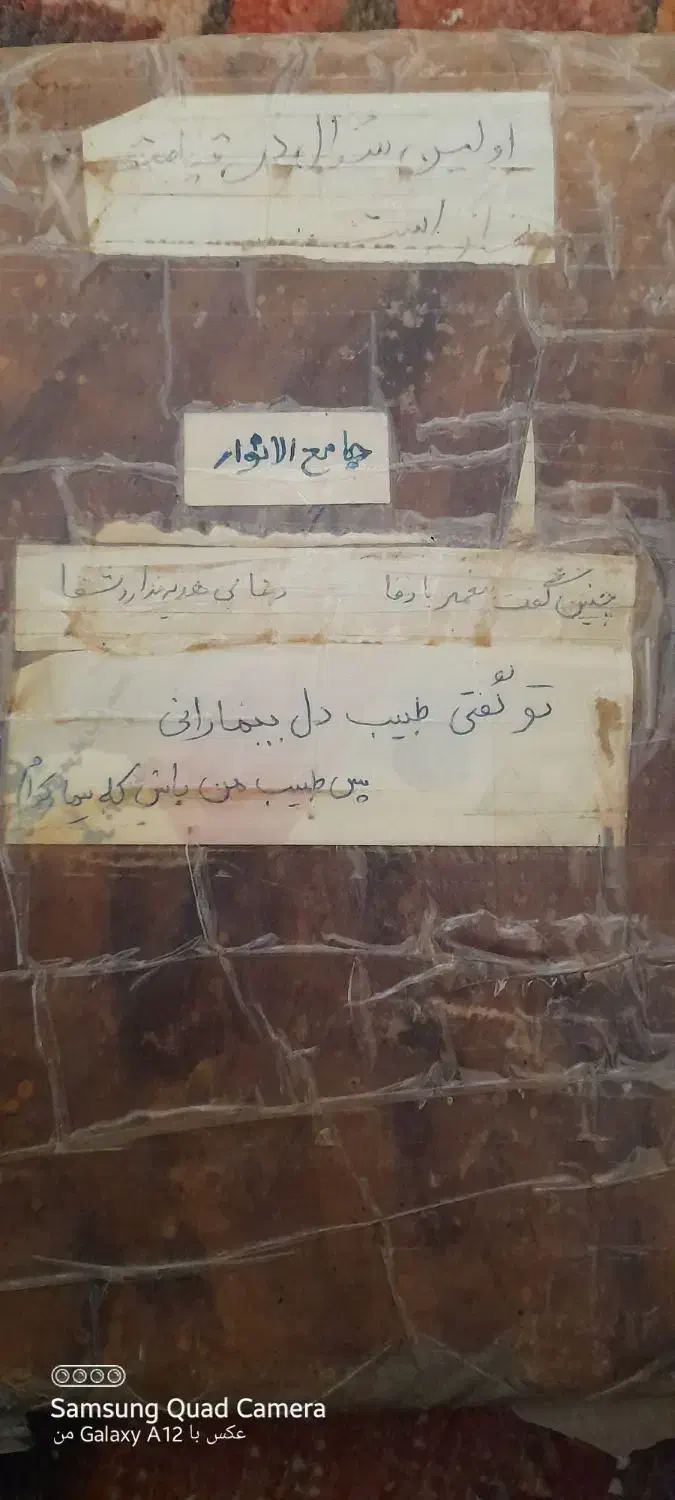 اولین سوال در قیامت
نماز است
جامع الانوار
چنین گفت پیغمبر با وفا دعائی هدیه ندارد شفا
تو گفتی طبیب دل بیمارانی
پس طبیب من باش که بیمار توام
Samsung Quad Camera
عکس با Galaxy A12 من